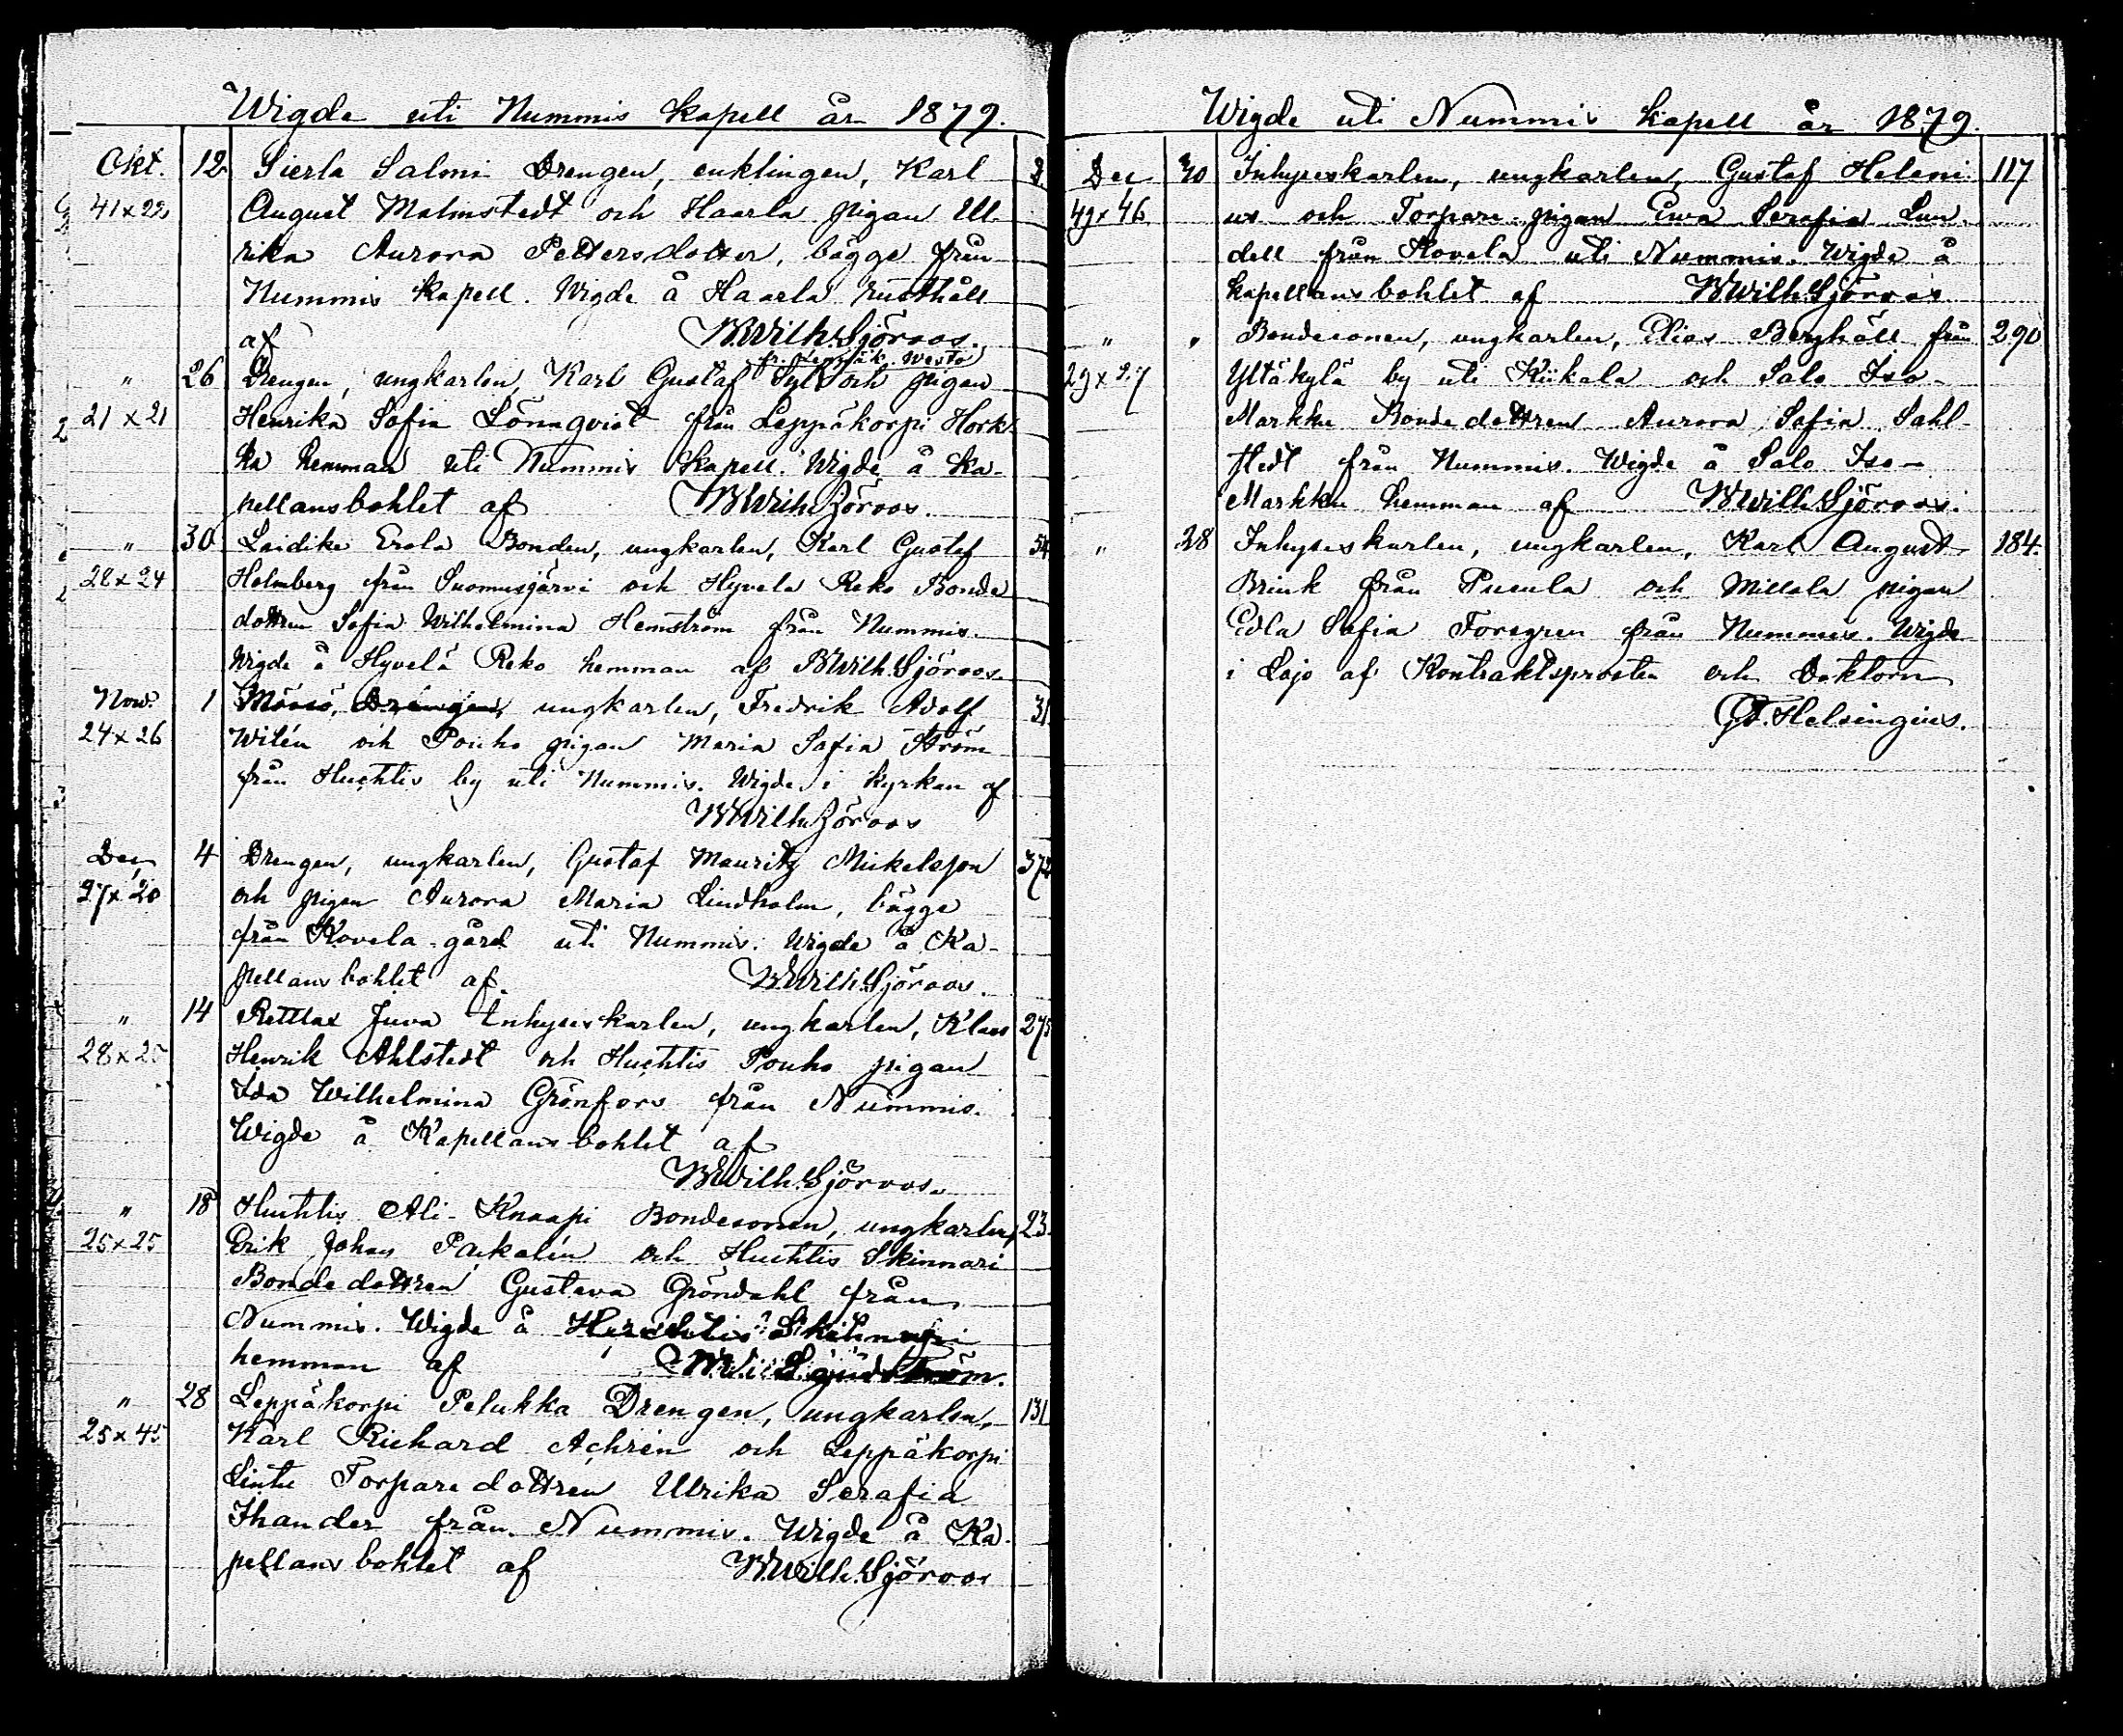 Wigde uti Nummis kapell år 1879.
Okt. 12 Sierla Salmi Drengen, enklingen, Karl
41 x 22 August Malmstedt och Haarla pigan Ul-
rika Aurora Pettersdotter, bägge från
Nummis Kapell. Wigde å Haarla rusthåll
af BWilh. Sjöroos.
" 26 Drengen, ungkarlen, Karl Gustaf och pigan
21 x 21 Henrika Sofia Lönnqvist från Leppäkorpi Hork-
ka hemman uti Nummis Kapell. Wigde å ka-
pellansbohlet af BWilh. Sjöroos.
" 30 Laidike Erola Bonden, ungkarlen, Karl Gustaf 54
28 x 24 Holmberg från Suomusjärvi och Hyvelä Reko Bonde
dottren Sofia Wilhelmina Hemström från Nummis.
Wigde å Hyvelä Reko hemman af BWilh. Sjöroos.
Nov. 1 ungkarlen, Fredrik Adolf 31
24 x 26 Wilén och Pouho pigan Maria Sofia Ström
från Huhtis by uti Nummis. Wigde i kyrkan af
BWilh. Sjöroos
Dec. 4 Drengen, ungkarlen, Gustaf Mauritz Mickelsson 372
27 x 20 och pigan Aurora Maria Lindholm, bägge
från Kovela gård uti Nummis. Wigde å Ka-
pellansbohlet af BWilh. Sjöroos.
" 14 Juva Inhyseskarlen, ungkarlen, Klaes 275
28 x 25 Henrik Ahlstedt och Huhtis Pouho pigan
Ida Wilhelmina Grönfors från Nummis.
Wigde å Kapellansbohlet af
BWilh. Sjöroos.
" 18 Huhtis Ali-Knaapi Bondesonen, ungkarlen, 23
25 x 25 Erik Johan Packalén och Huhtis Skinnari
Bondedottren Gustava Gröndahl från
Nummis. Wigde å Skinnari
hemman af
" 28 Leppäkorpi Pelukka Drengen, ungkarlen, 131
25 x 45 Karl Richard Achrén och Leppäkorpi
Lintu Torparedottren Ulrika Serafia
Ihander från Nummis. Wigde å Ka-
pellansbohlet af BWilh. Sjöroos
Wigde uti Nummis kapell år 1879.
Dec Inhyseskarlen, ungkarlen, Gustaf Heleni- 117
49 x 46 us och Torpare-pigan Ewa Serafia Lun-
dell från Kovela uti Nummis. Wigde å
kapellansbohlet af BWilh. Sjöroos
" " Bondesonen, ungkarlen, Elias Berghäll från 290
29 x 27 Yltäkylä by uti Kiikala och Salo Iso-
Markku Bondedottren Aurora Sofia Sahl-
stedt från Nummis. Wigde å Salo Iso-
Markku hemman af BWilh. Sjöroos.
" 28 Inhyseskarlen, ungkarlen, Karl August 184.
Brink från Pusula och Millola pigan
Edla Sofia Forsgren från Nummis. Wigde
i Lojo af Kontraktsprosten och Doktorn
G. Helsingius.